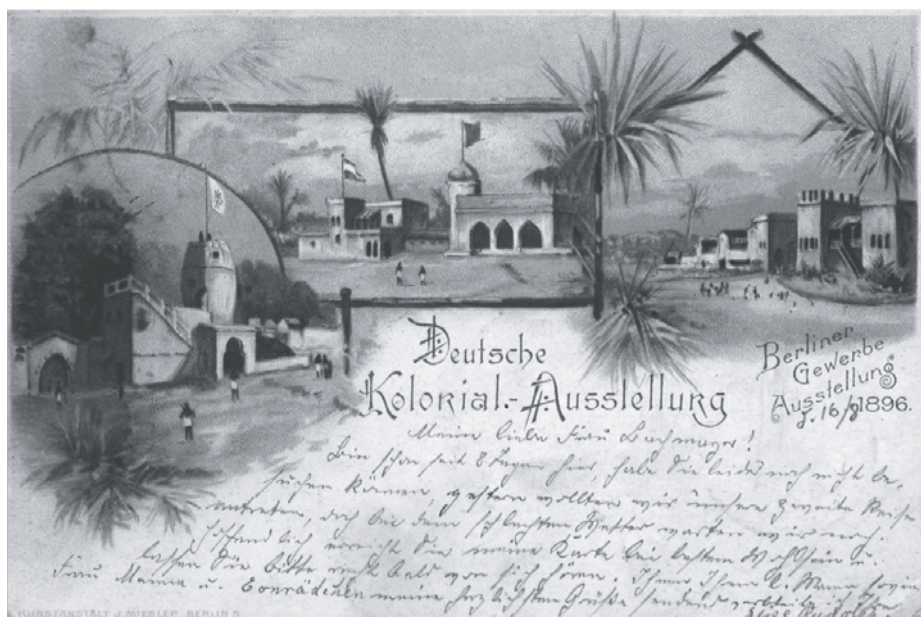 Deutsche
Kolonial-Ausstellung
Berliner
Gewerbe
Ausstellung
d. 16/8 1896.
Meine liebe Frau Bachmayer!
Bin schon seit 8 Tagen hier, habe Sie leider noch nicht be-
suchen können, gestern wollten wir unsere zweite Reise
antreten, doch bei dem schlechten Wetter warten wir noch.
Hoffentlich erreicht Sie meine Karte bei bestem Wohlsein u.
lassen Sie bitte recht bald von sich hören. Ihrem l. Mann sowie
Frau Menna u. Conrädchen meine herzlichsten Grüße sendend verbleibe ich Ihre
Rudolph
KUNSTANSTALT J. MIESLER, BERLIN S.